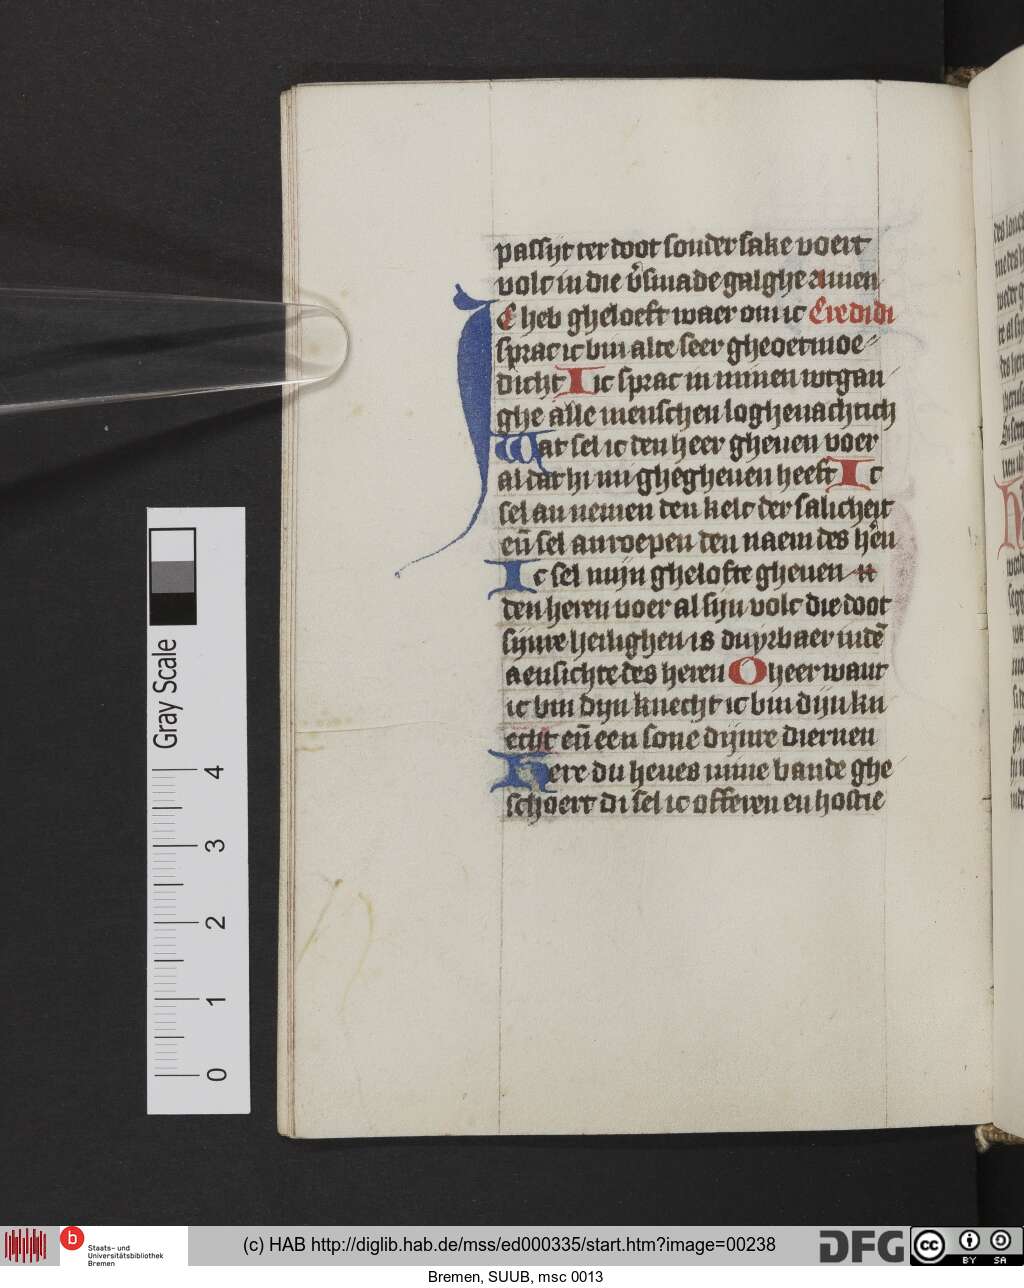 passijt ter doot sonder sake voert
volc in die v̓smade galghe amen
Ic heb gheloeft waer om ic Credidi
sprac ic bin alte seer gheoetmoe-
dicht Iic sprac in minen wtgan
ghe alle menschen loghenachtich
Wat sel ic den heer gheuen voer
al dat hi mi ghegheuen heeft Ic
sel an nemen den kelc der salicheit
eñ sel anroepen den naem des he̓n
Ic sel mijn ghelofte gheuen
den heren voer al sijn volc die doot
sijnre heilighen is duyrbaer in dē
aensichte des heren O heer want
ic bin dijn knecht ic bin dijn kn
echt eñ een sone dijnre diernen
Here du heues mine bande ghe
schoert di sel ic offeren en hostie
Gray Scale
0 1 2 3 4
b Staats- und
Universitätsbibliothek
Bremen
(c) HAB http://diglib.hab.de/mss/ed000335/start.htm?image=00238
DFG
cc BY SA
Bremen, SUUB, msc 0013